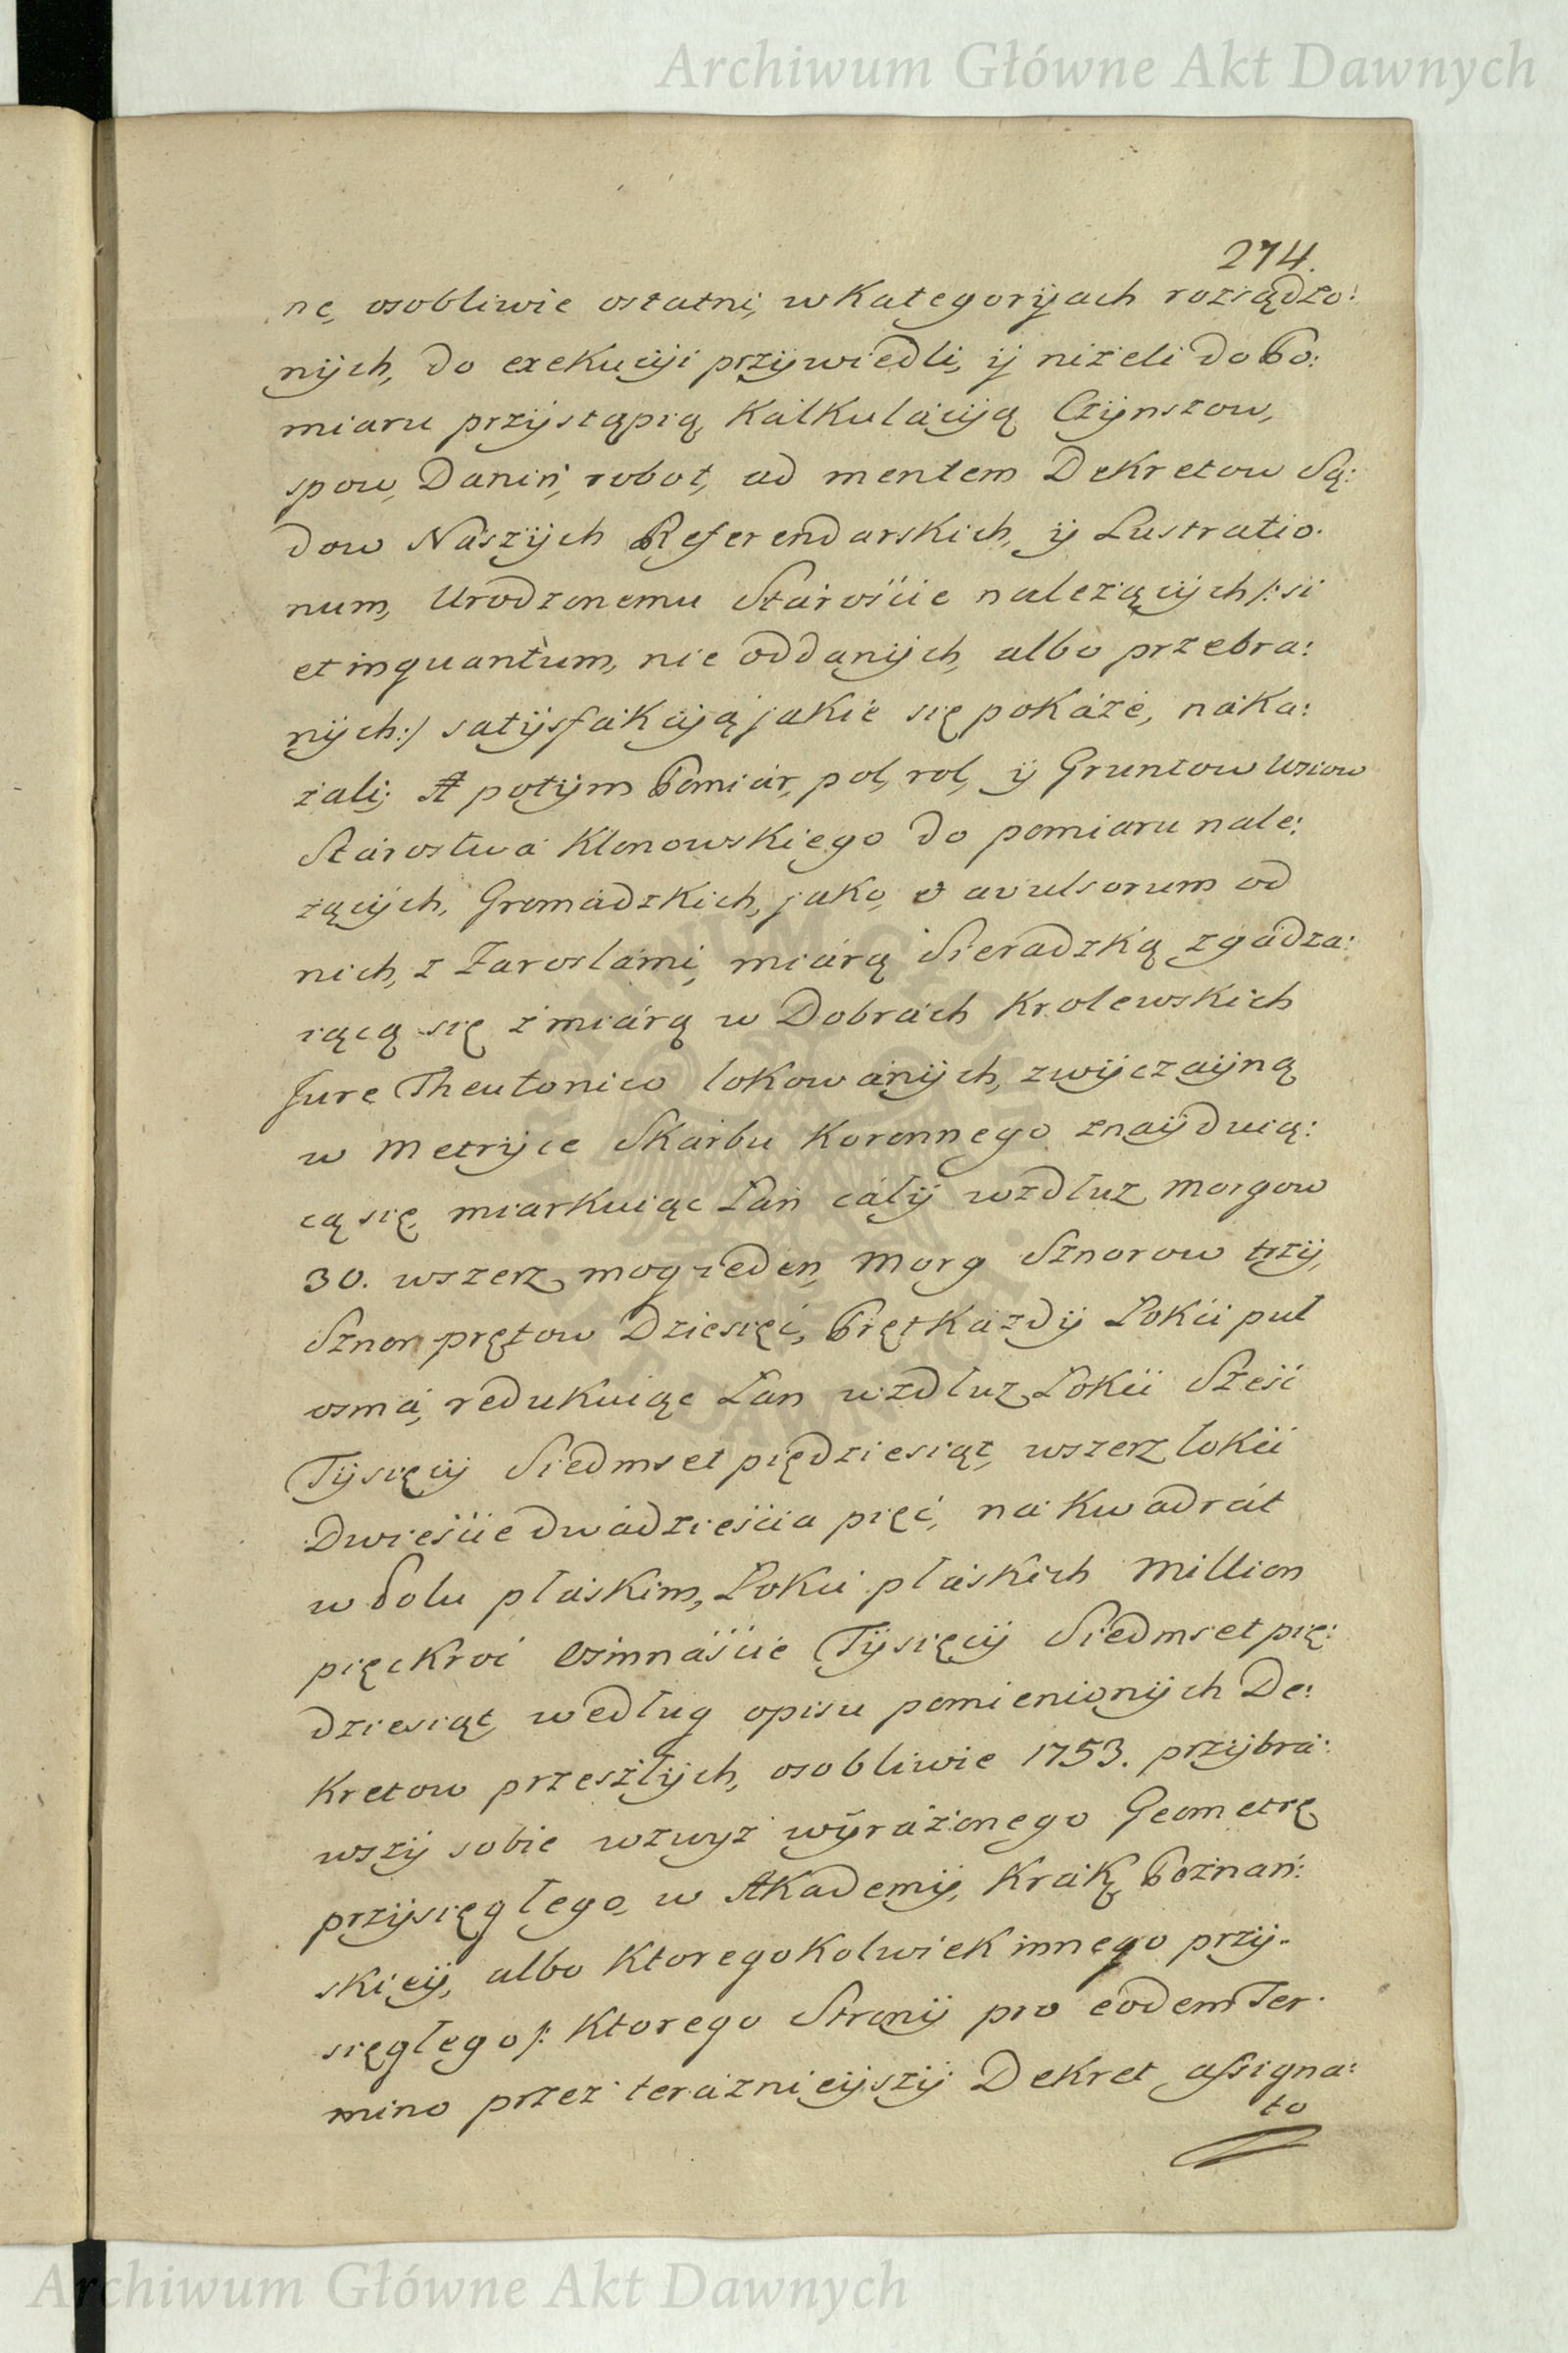 Archiwum Główne Akt Dawnych
274.
ne, osobliwie ostatni, w Kategoryach rozsądzo:
nych, do exekucyi przywiedli, y niżeli do Po:
miaru przystąpią, Kalkulacyą Czynszow,
spow, Danin, robot, ad mentem Dekretow Są:
dow Naszych Referendarskich, y Lustratio.
num, Urodzonemu Starośćie należących /: si
et inquantum, nie oddanych, albo przebra:
nych :/ satysfakcyą jakie się pokaże, naka:
zali; A potym Pomiar, pol, rol, y Gruntow Wsiow
Starostwa Klonowskiego do pomiaru nale:
żących, Gromadzkich, jako, avulsorum od
nich, z Zaroslami, miarą Sieradzką zgadza:
iącą się z miarą w Dobrach Krolewskich
Jure Theutonico lokowanych, zwyczayną
w Metryce Skarbu Koronnego znayduią:
cą się, miarkuiąc Łan cały wzdłuz morgow
30. wszerz mog ieden, Morg Sznorow trzy,
Sznor prętow Dziesięć, Pręt każdy Łokci puł
osma, redukuiąc Łan wzdłuz Łokci Sześć
Tysięcy Siedmset piędziesiąt, wszerz łokci
Dwieście dwadzieścia pięć, na Kwadrat
w Polu płaskim, Łokci płaskich Million
pięckroć Osimnaście Tysięcy Siedmset pię:
dziesiąt, według opisu pomienionych De:
kretow przeszłych, osobliwie 1753. przybra:
wszy sobie wzwyz wyrażonego Geometrę
przysięgłego, w Akademij, Krak, Poznań:
skiey, albo Ktoregokolwiek innego przy-
sięgłego /: Ktorego Strony pro eodem Ter.
mino przez teraznieyszy Dekret assigna:
to
Archiwum Główne Akt Dawnych